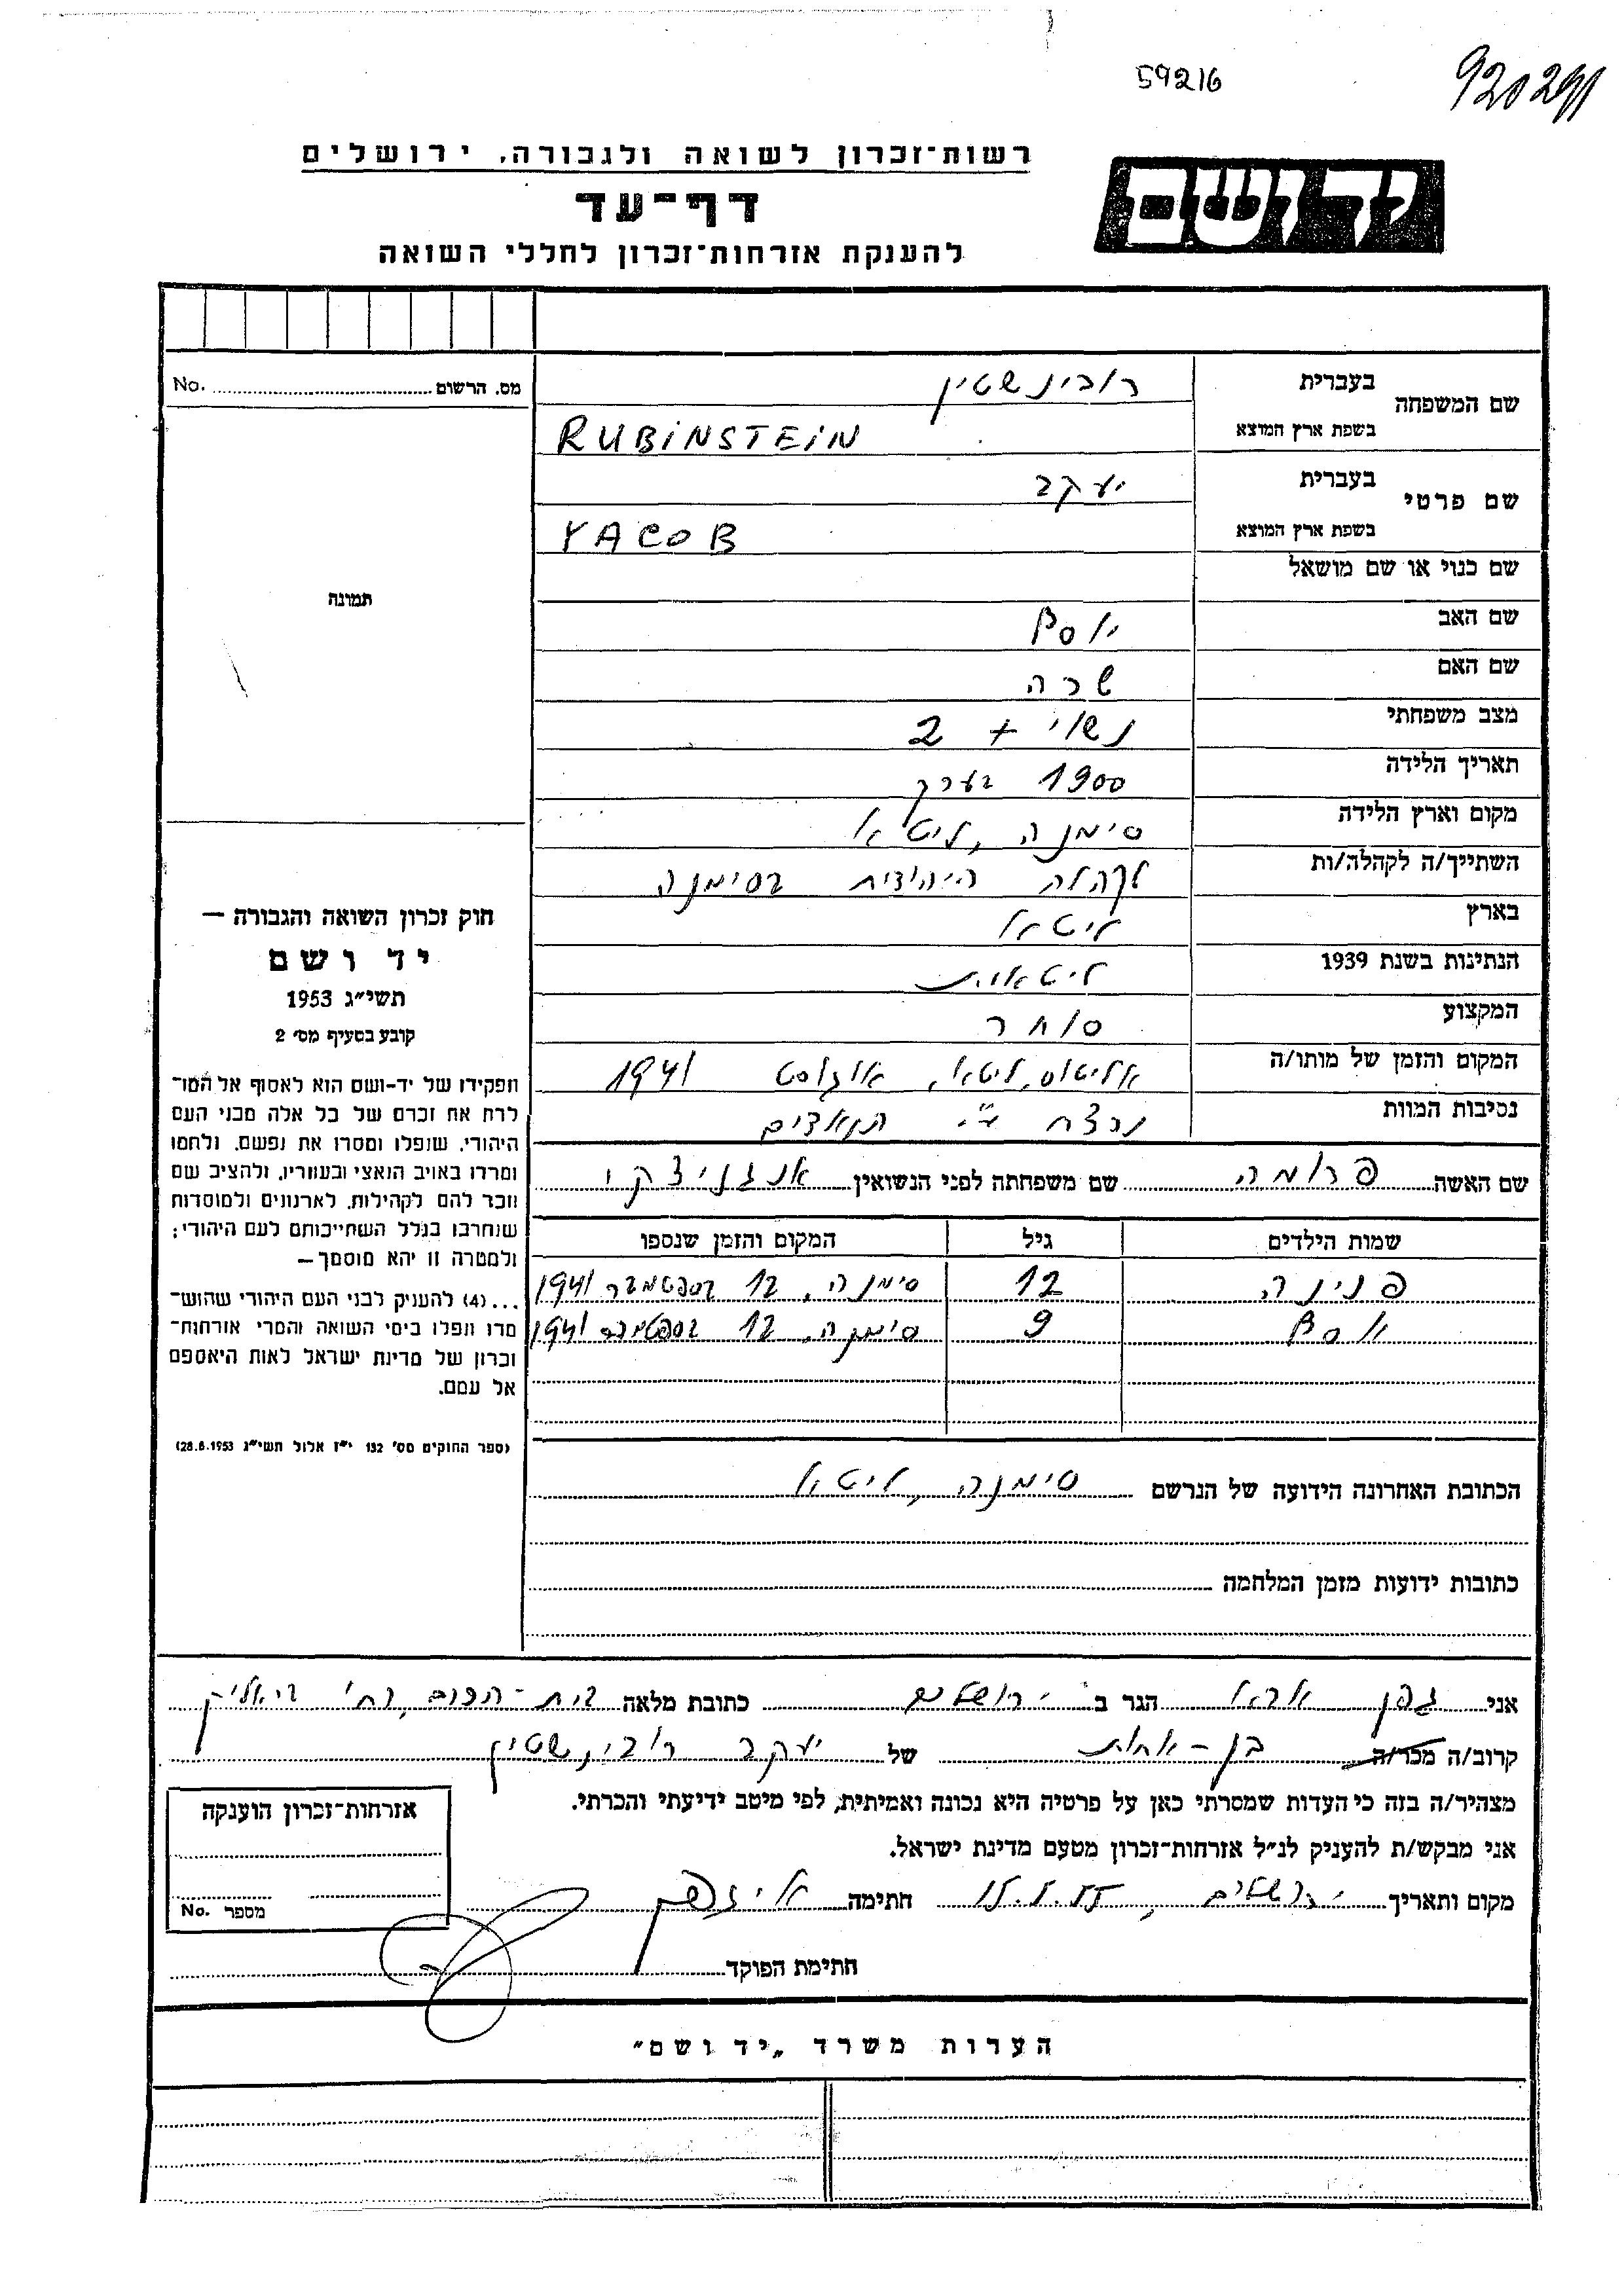 59216
920291
רשות־זכרון לשואה ולגבורה, ירושלים
יד ושם
דף־עד
להענקת אזרחות־זכרון לחללי השואה
מס. הרשום No.
תמונה
שם המשפחה בעברית רובינשטיין
בשפת ארץ המוצא RUBINSTEIN
שם פרטי בעברית יעקב
בשפת ארץ המוצא YACOB
שם כנוי או שם מושאל
שם האב יוסף
שם האם שרה
מצב משפחתי נשוי + 2
תאריך הלידה 1900 בערך
מקום וארץ הלידה סימנה, ליטא
השתייך/ה לקהלה/ות לקהלה היהודית בסימנה
בארץ ליטא
הנתינות בשנת 1939 ליטאית
המקצוע סוחר
המקום והזמן של מותו/ה אליטוס, ליטא, אוגוסט 1941
נסיבות המוות נרצח ע"י הנאצים
שם האשה פרומה שם משפחתה לפני הנשואין
שמות הילדים גיל המקום והזמן שנספו
פנינה 12 סימנה, 12 בספטמבר 1941
יוסף 9 סימנה, 12 בספטמבר 1941
הכתובת האחרונה הידועה של הנרשם סימנה, ליטא
כתובות ידועות מזמן המלחמה
חוק זכרון השואה והגבורה —
יד ושם
תשי״ג 1953
קובע בסעיף מס׳ 2
תפקידו של יד־ושם הוא לאסוף אל המו־
לדת את זכרם של כל אלה מבני העם
היהודי, שנפלו ומסרו את נפשם, נלחמו
ומרדו באויב הנאצי ובעוזריו, ולהציב שם
וזכר להם לקהילות, לארגונים ולמוסדות
שנחרבו בגלל השתייכותם לעם היהודי;
ולמטרה זו יהא מוסמך —
...(4) להעניק לבני העם היהודי שהוש־
מדו ונפלו בימי השואה והמרי אזרחות־
זכרון של מדינת ישראל לאות היאספם
אל עמם.
(ספר החוקים מס׳ 132 י״ז אלול תשי״ג 28.8.1953)
אני גפן אבא הגר ב ירושלים כתובת מלאה בית-הכרם, רח' ביאליק
קרוב/ה מכר/ה בן-אחות של יעקב רובינשטיין
מצהיר/ה בזה כי העדות שמסרתי כאן על פרטיה היא נכונה ואמיתית, לפי מיטב ידיעתי והכרתי.
אני מבקש/ת להעניק לנ״ל אזרחות־זכרון מטעם מדינת ישראל.
מקום ותאריך ירושלים, חתימה
חתימת הפוקד
אזרחות־זכרון הוענקה
מספר No.
הערות משרד „יד ושם״